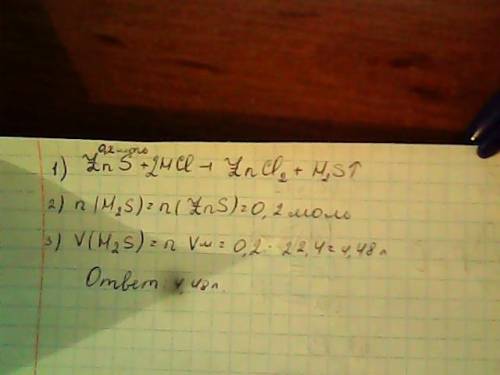 0,2 моль
1) ZnS + 2HCl → ZnCl₂ + H₂S↑
2) n (H₂S) = n (ZnS) = 0,2 моль
3) V(H₂S) = n Vм = 0,2 · 22,4 = 4,48 л
Ответ 4,48 л.